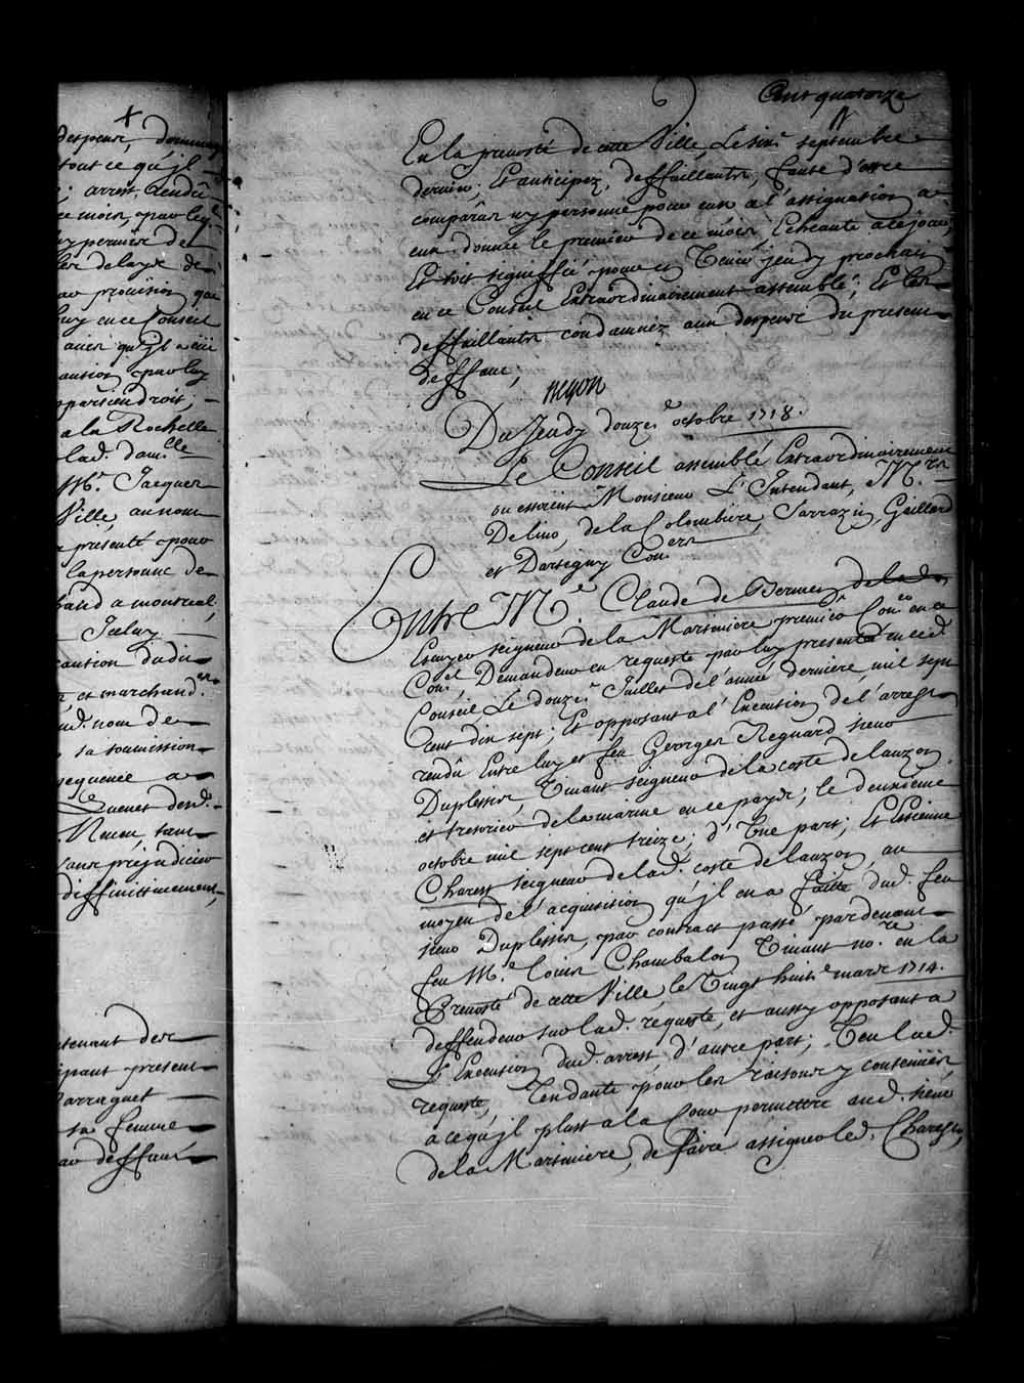 despens, domma
tout ce qu'jl
arrest Rendû
ce mois, par leq.l
premier de
delaye de
par provision que
luy en ce Conseil
ainsi qu'jl a etté
caution par luy
appartiendroit;
a la Rochelle
lad. dam.lle
M.r Jacques
Ville, au nom
presenté pour
la personne de
a montreal,
caution dudit
et marchand
aud. nom de
sa soumission
requence a
Quenet dem.r
sans
sans prejudicier
diffinitivement,
tenant des
present
sa femme
par deffaut
Cent quatorze
En la prevosté de cette Ville, Le six.e septembre
dernier; Et anticipez, deffaillants, faute d'estre
comparus ny personne pour eux a l'assignation a
eux donnée le premier de ce mois, Echeante a ce jour,
Et soit signiffié pour en Venir jeudy prochain
en ce Conseil Extraordinairement assemblé; Et les
deffaillants condamnez aux despens du present
deffaut;
Begon
Du Jeudy douze.e octobre 1718.
Le Conseil assemblé Extraordinairement
ou estoient Monsieur L'Intendant, M.rs
Delino, de la Colombiere, Sarrazin, Gaillard
et Dartigny Con.ers
Entre M.e Claude de Bermen
Escuyer seigneur de la Martiniere premier Con.er en ce
Con.el, Demandeur en requeste par luy presentée en ced.
Conseil Le douze.e Juillet de l'année derniere, mil sept
cent dix sept; Et opposant a l'Execution de l'arrest
rendû Entre luy et feu Georges Regnard sieur
Duplessis, Vivant seigneur de la coste de lauzon
et tresorier de la marine en ce pays; le deuxieme
octobre mil sept cent treize; d'Une part; Et Estienne
Charest seigneur de lad. coste de lauzon, au
moyen de l'acquisition qu'jl en a faitte dud. feu
sieur Duplessis, par contract passé pardevant
feu M.e Louis Chambalon Vivant no.re en la
Prevosté de cette Ville, le Vingt huit.e mars 1714.
deffendeur sur lad. requeste, et aussy opposant a
L'Execution dud. arrest d'autre part; Veu lad.
requeste, Tendante pour les raisons y contenües
a ce qu'jl plust a la Cour permettre aud. sieur
de la Martiniere, de faire assigner led. Charest,